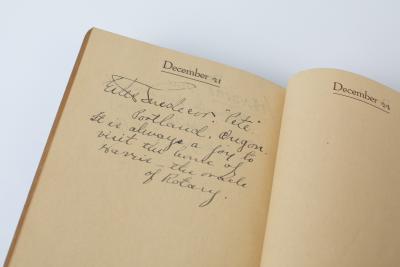 December 21
"Pete"
Portland, Oregon.
It is always a joy to
visit the home of
Harris – the oracle
of Rotary.
December 22